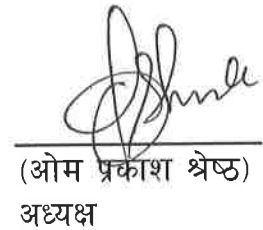 (ओम प्रकाश श्रेष्ठ)
अध्यक्ष